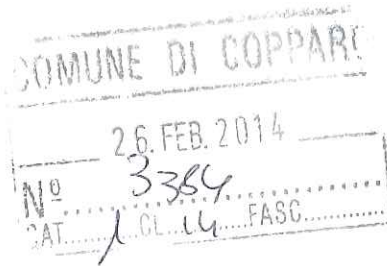 COMUNE DI COPPARO
26. FEB. 2014
Nº 3384
CAT. 1 CL. 14 FASC.